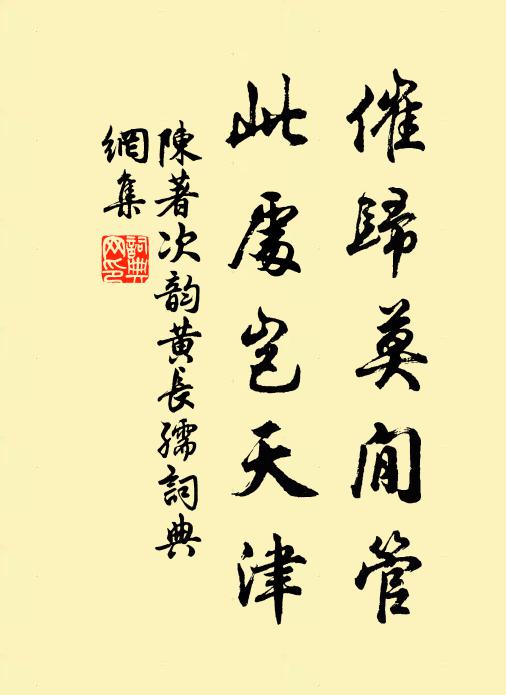 催歸莫閒管
此處豈天津
陳著次韵黃長孺詞典
網集
詞典
网印